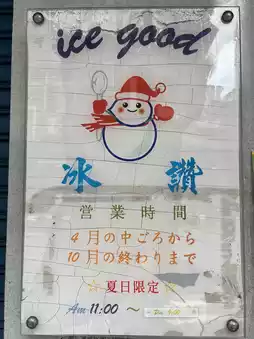 ice good
冰 讚
営業時間
4月の中ごろから
10月の終わりまで
☆ 夏日限定 ☆
Am 11:00 ～